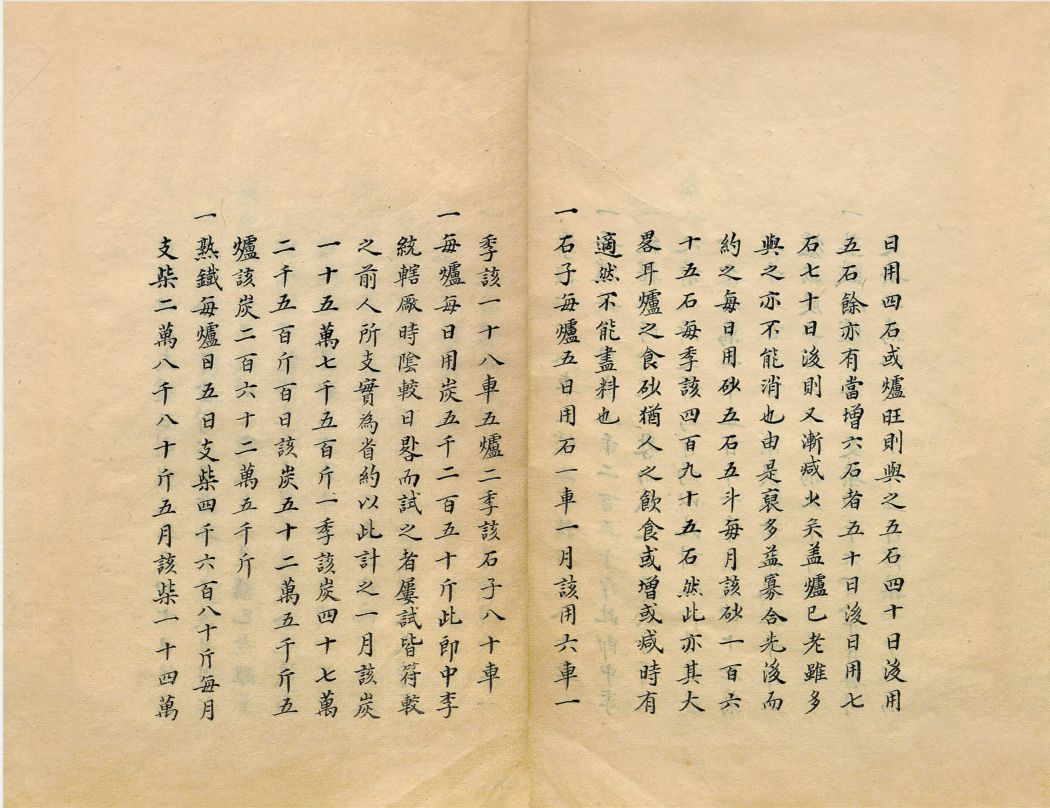 日用四石或爐旺則與之五石四十日後用
五石餘亦有當增六石者五十日後日用七
石七十日後則又漸减少矣盖爐已老雖多
與之亦不能消也由是裒多益寡合先後而
約之每日用砂五石五斗每月該砂一百六
十五石每季該四百九十五石然此亦其大
畧耳爐之食砂猶人之飲食或增或减時有
適然不能盡料也
一石子每爐五日用石一車一月該用六車一
季該一十八車五爐二季該石子八十車
一每爐每日用炭五千二百五十斤此即中李
統轄廠時陰較日晷而試之者屢試皆符較
之前人所支實為省約以此計之一月該炭
一十五萬七千五百斤一季該炭四十七萬
二千五百斤百日該炭五十二萬五千斤五
爐該炭二百六十二萬五千斤
一熟鐵每爐日五日支柴四千六百八十斤每月
支柴二萬八千八十斤五月該柴一十四萬